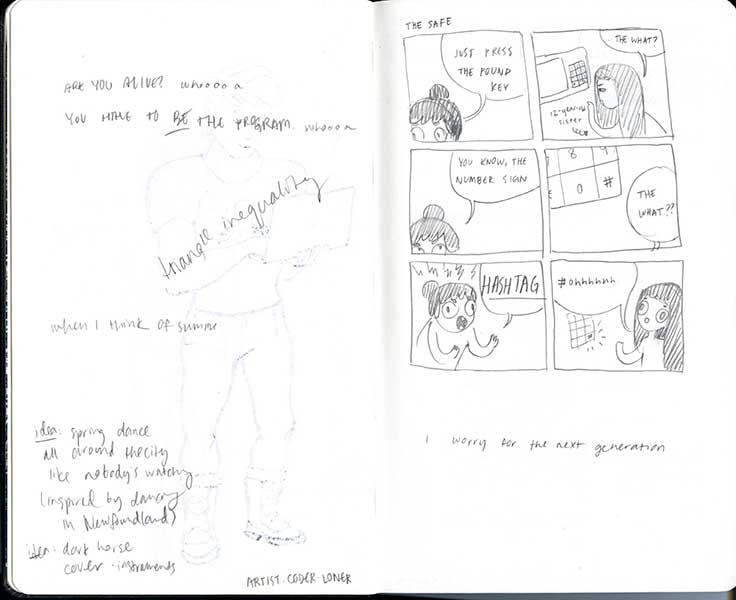 ARE YOU ALIVE? whoooo a
YOU HAVE TO BE THE PROGRAM. whooo a
triangle inequality
when I think of summer
idea: spring dance
all around the city
like nobody's watching
(inspired by dancing
in Newfoundland)
idea: dark horse
cover - instruments
ARTIST. CODER. LONER
THE SAFE
JUST PRESS
THE POUND
KEY
THE WHAT?
12-year-old
sister
YOU KNOW, THE
NUMBER SIGN
8 9
0 #
THE
WHAT??
HASHTAG
#ohhhhhh
I worry for the next generation